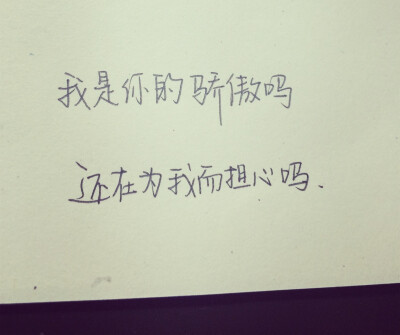 我是你的骄傲吗
还在为我而担心吗.